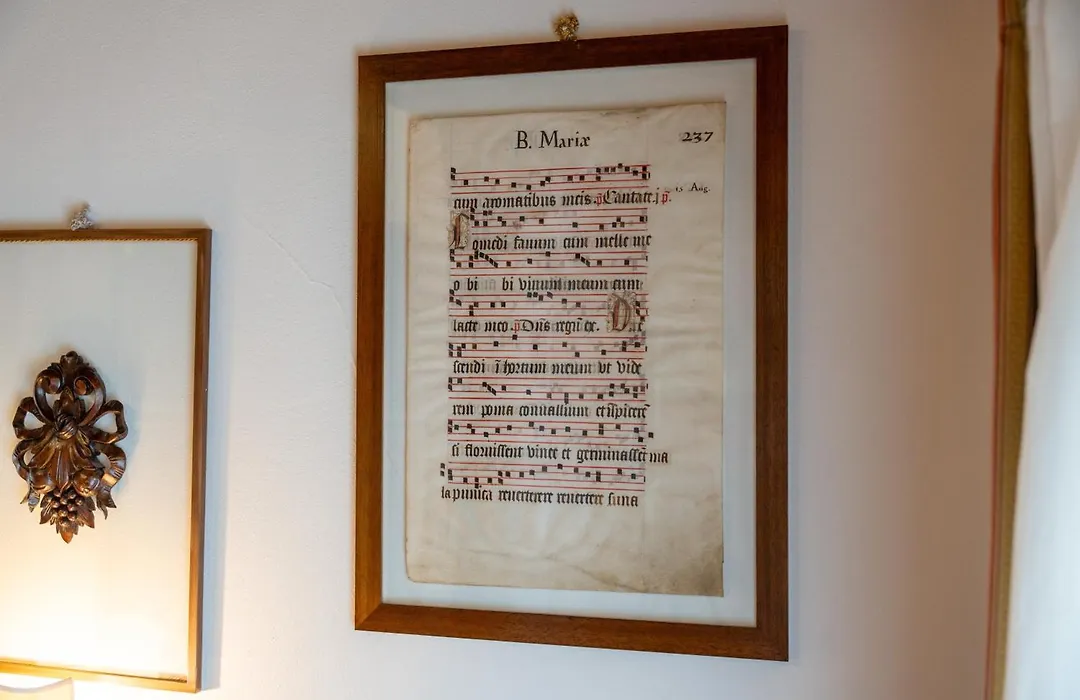 B. Mariæ 237
15 Aug.
cum aromatibus meis. p̃ Cantate. j p̃.
Comedi fauum cum melle me
o bi bi vinum meum cum
lacte meo. p̃ Dñs regũ ex. De
scendi ĩ hortum meum vt vide
rem poma conuallium et ĩspicerẽ
si floruissent vinee et germinassẽt ma
la punica reuerterere reuertere suna